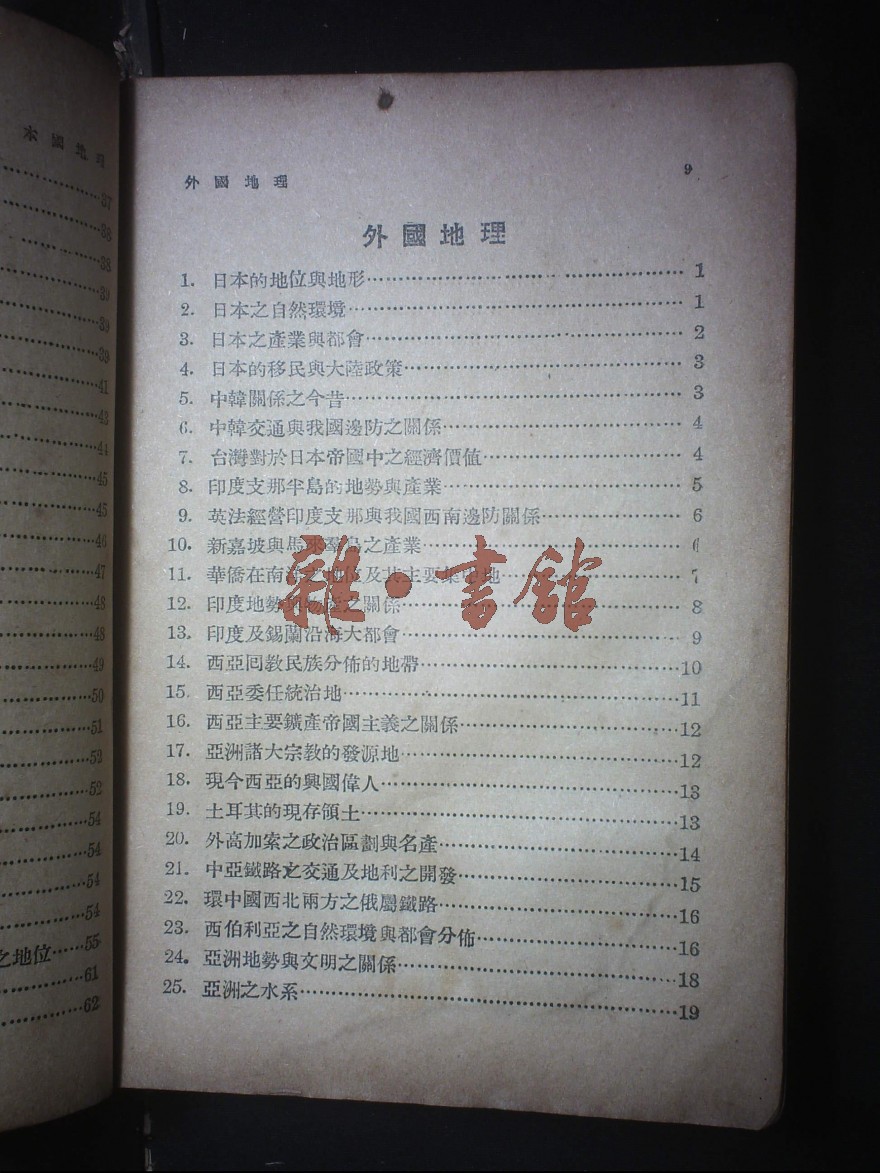 本國地理
37
38
38
39
39
39
41
43
44
45
45
46
47
48
48
49
50
51
52
52
54
54
54
54
之地位……55
61
62
外國地理 9
外國地理
1. 日本的地位與地形……1
2. 日本之自然環境……1
3. 日本之產業與都會……2
4. 日本的移民與大陸政策……3
5. 中韓關係之今昔……3
6. 中韓交通與我國邊防之關係……4
7. 台灣對於日本帝國中之經濟價值……4
8. 印度支那半島的地勢與產業……5
9. 英法經營印度支那與我國西南邊防關係……6
10. 新嘉坡與馬來羣島之產業……6
11. 華僑在南洋之地位及其主要集中地……7
12. 印度地勢與物產之關係……8
13. 印度及錫蘭沿海大都會……9
14. 西亞回教民族分佈的地帶……10
15. 西亞委任統治地……11
16. 西亞主要鑛產帝國主義之關係……12
17. 亞洲諸大宗教的發源地……12
18. 現今西亞的興國偉人……13
19. 土耳其的現存領土……13
20. 外高加索之政治區劃與名產……14
21. 中亞鐵路之交通及地利之開發……15
22. 環中國西北兩方之俄屬鐵路……16
23. 西伯利亞之自然環境與都會分佈……16
24. 亞洲地勢與文明之關係……18
25. 亞洲之水系……19
雜·書館